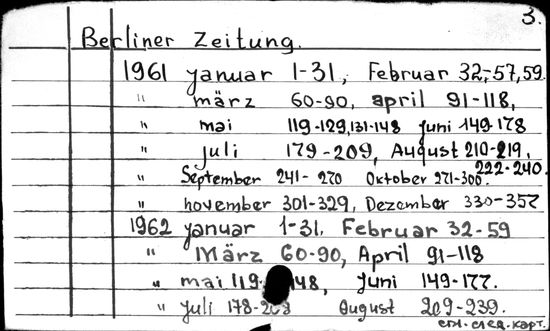 3.
Berliner Zeitung.
1961 januar 1-31, Februar 32-57,59.
" märz 60-90, april 91-118,
" mai 119-129,131-148 juni 149-178
" juli 179-209, August 210-219,
222-240.
" September 241-270 Oktober 271-300.
" november 301-329, Dezember 330-357
1962 januar 1-31, Februar 32-59
" März 60-90, April 91-118
" mai 119 148, juni 149-177.
" juli 178-208 August 209-239.